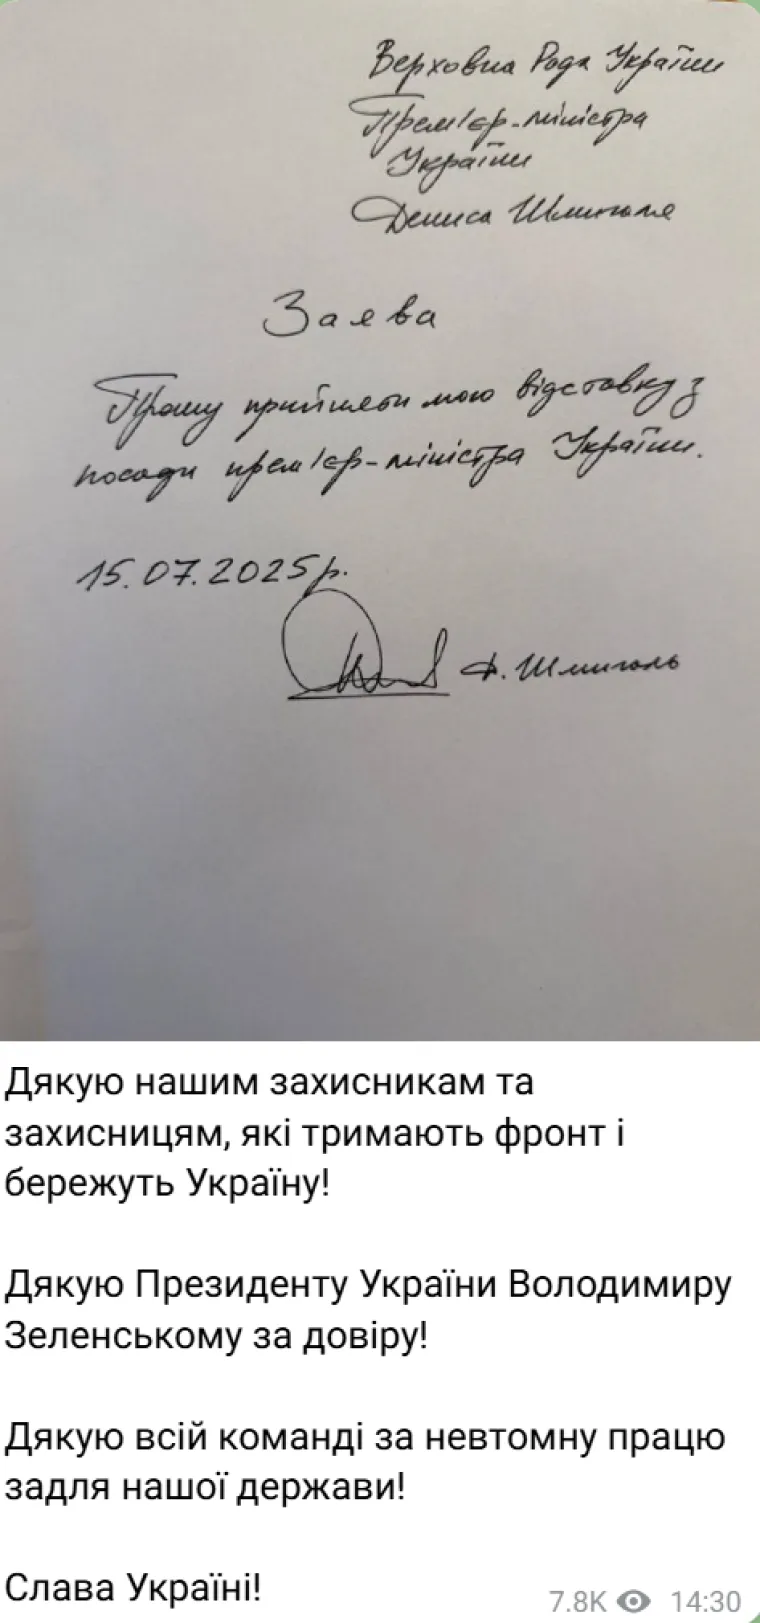 Верховна Рада України
Прем'єр-міністра
України
Дениса Шмигаля
Заява
Прошу прийняти мою відставку з
посади прем'єр-міністра України.
15.07.2025р.
Д. Шмигаль
Дякую нашим захисникам та
захисницям, які тримають фронт і
бережуть Україну!
Дякую Президенту України Володимиру
Зеленському за довіру!
Дякую всій команді за невтомну працю
задля нашої держави!
Слава Україні!
7.8K 14:30